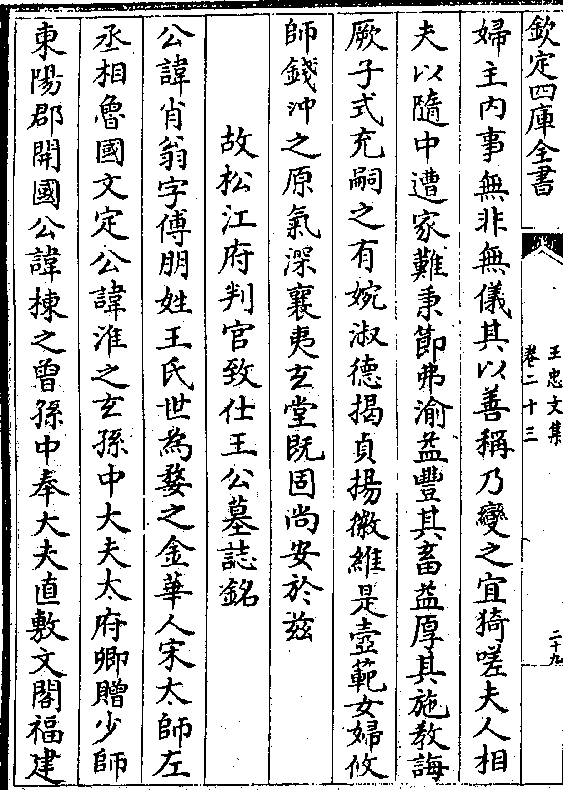 欽定四庫全書
王忠文集
卷二十三
二十九
婦主内事無非無儀其以善稱乃變之宜猗嗟夫人相
夫以隨中遭家難秉節弗渝益豐其畜益厚其施教誨
厥子式充嗣之有婉淑德揭貞揚徽維是壼範女婦攸
師錢沖之原氣深襄夷玄堂既固尚安於兹
故松江府判官致仕王公墓誌銘
公諱肖翁字傅朋姓王氏世為婺之金華人宋太師左
丞相魯國文定公諱淮之玄孫中大夫太府卿贈少師
東陽郡開國公諱棟之曽孫中奉大夫直敷文閣福建